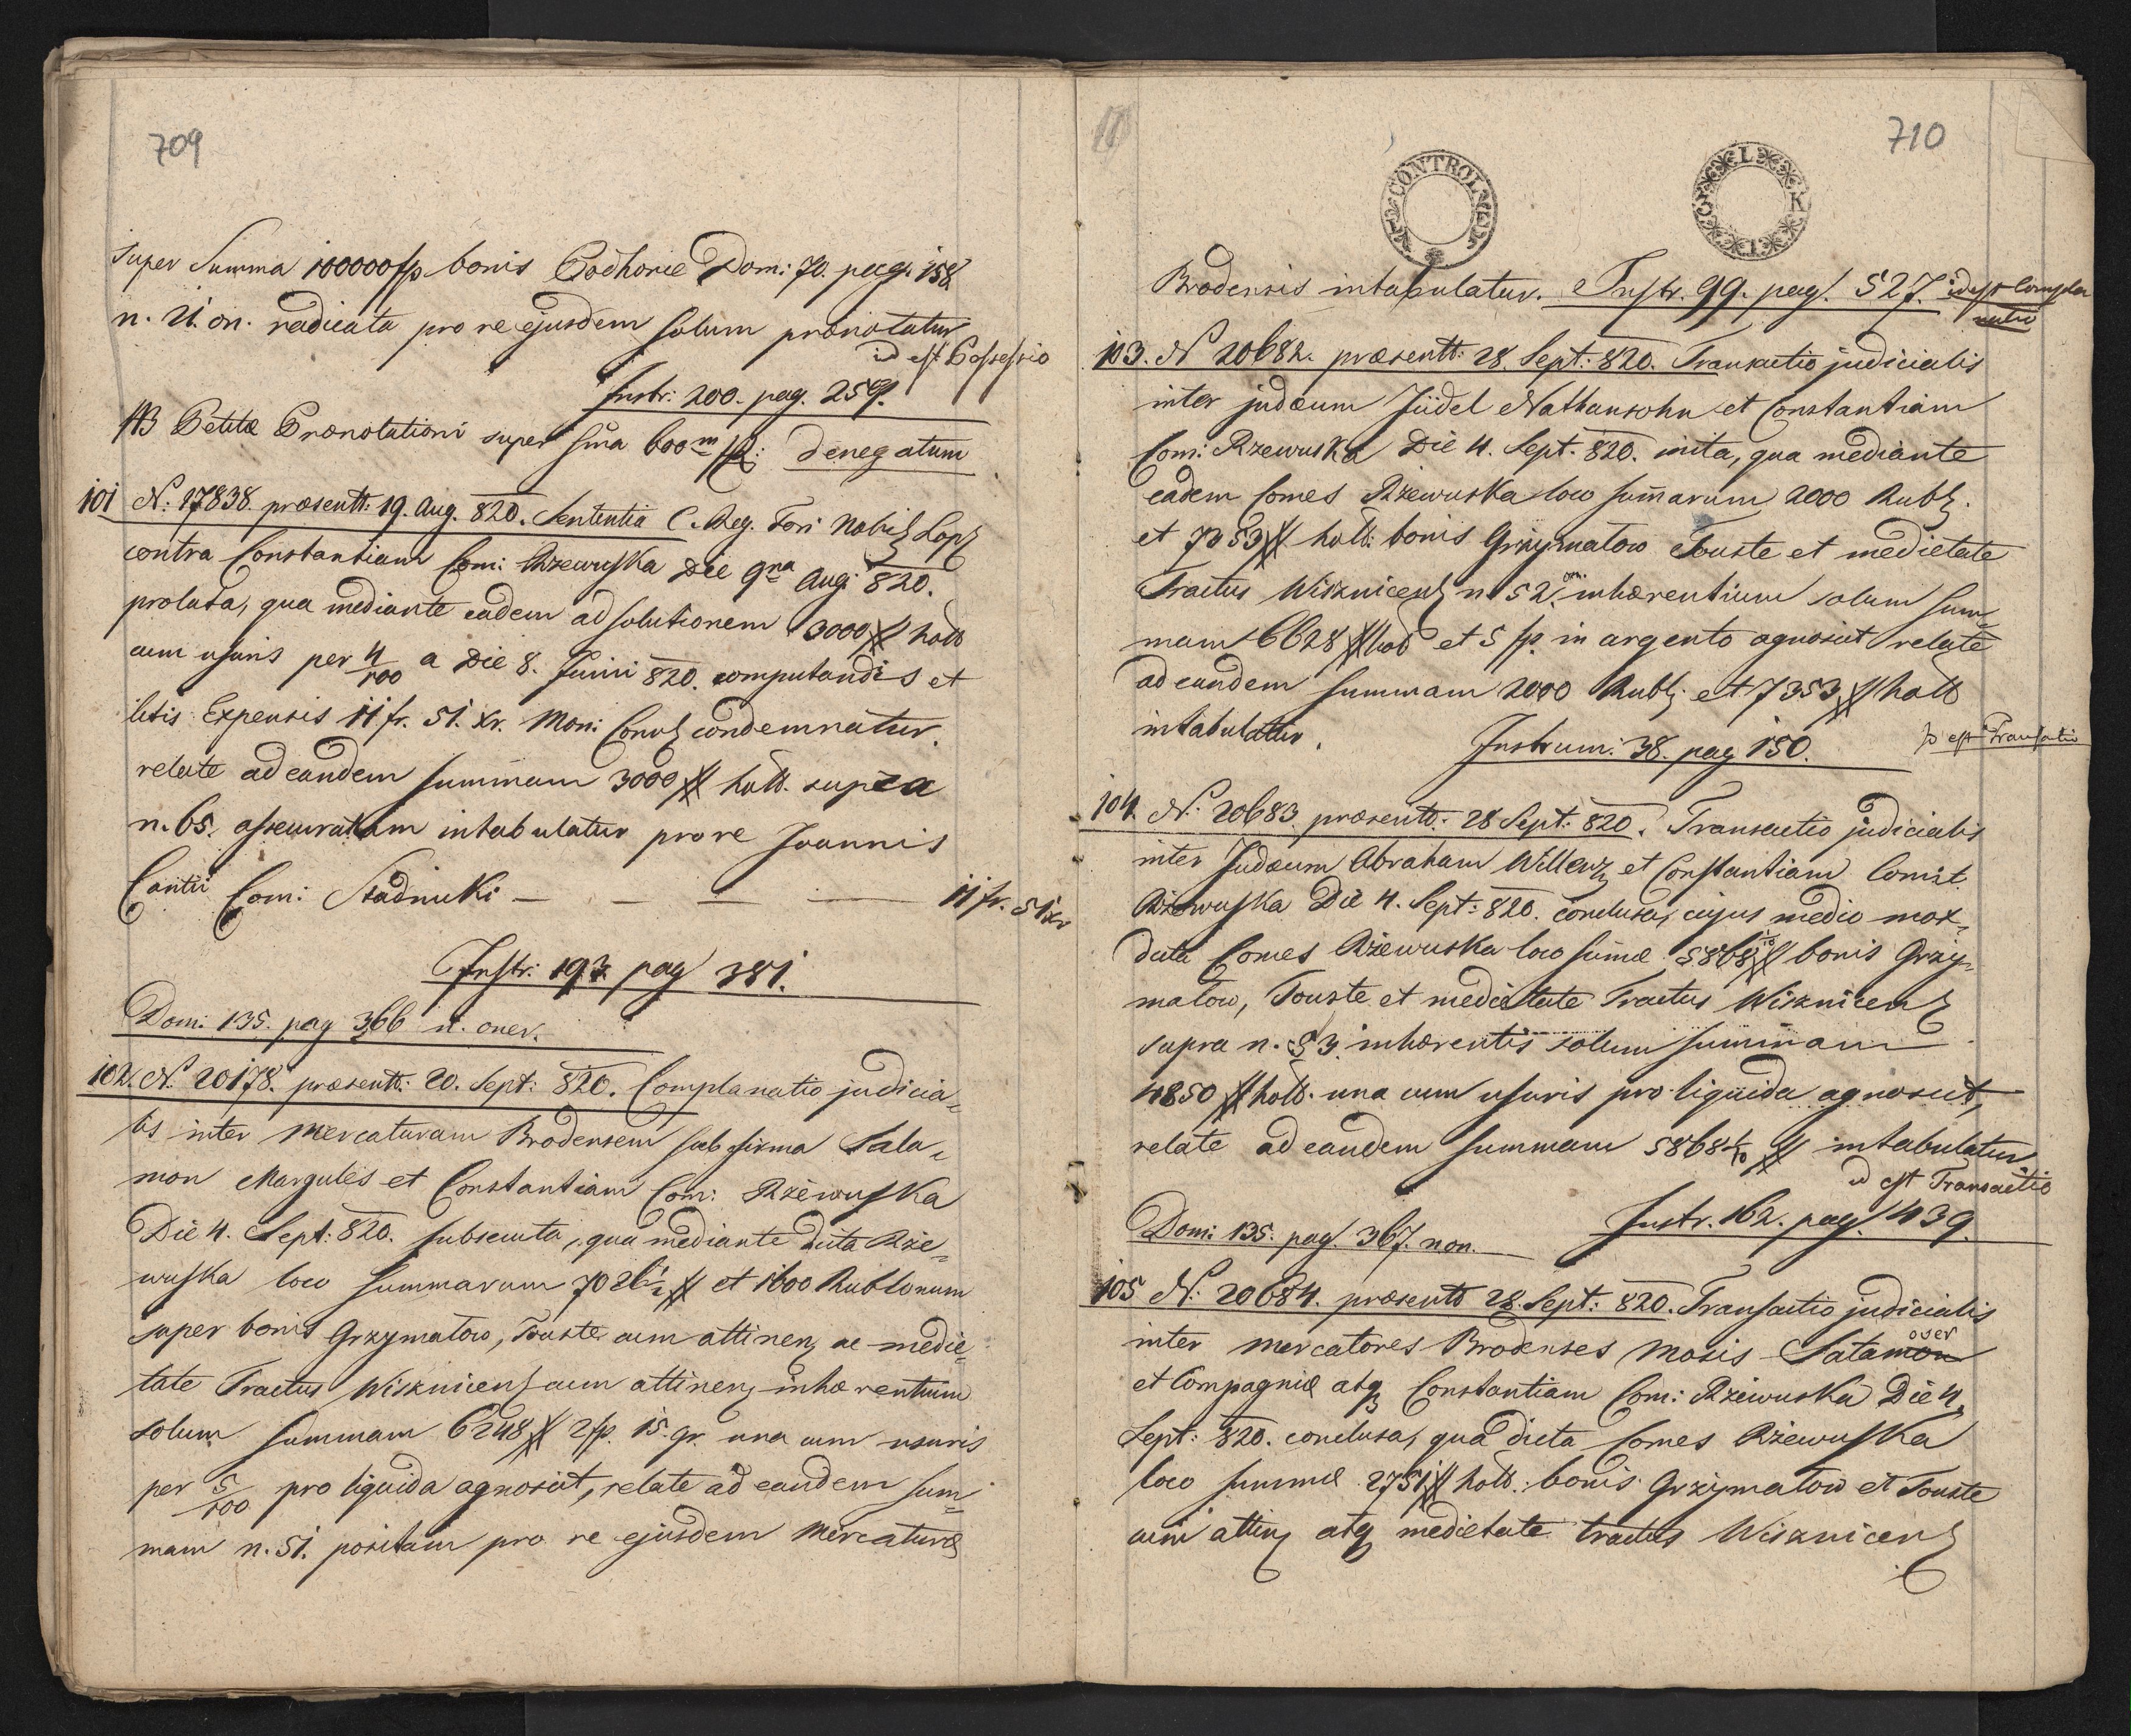 709
super Summa 100000 fp bonis Podhorce Dom: 70. pag. 158
n. 21. on. radicata pro re ejusdem solum prænotatur
id est Possessio
Instr: 200. pag. 259.
NB Petitæ Prænotationi super sma 600m fp: denegatum
101 N: 17838. præsentt: 19. Aug. 820. Sententia C. Reg. Fori Nobil Leop
contra Constantiam Com: Rzewuska Die 9na Aug: 820.
prolata, qua mediante eadem ad solutionem 3000 # holl
cum usuris per 4/100 a Die 8. Junii 820. computandis et
litis Expensis 11 fr. 51. xr. Mon: Conv condemnatur.
relate ad eandem summam 3000 # holl. supra
n. 65. assecuratam intabulatur pro re Joannis
Cantii Com: Stadnicki — — — — 11 fr. 51 xr
Instr: 193. pag 381.
Dom: 135. pag 366 n. oner.
102. N. 20178. præsentt: 20. Sept: 820. Complanatio judicia=
lis inter Mercaturam Brodensem sub firma Sala=
mon Margules et Constantiam Com: Rzewuska
Die 4. Sept: 820. subsecuta, qua mediante dicta Rze=
wuska loco summarum 7026½ # et 1600 Rublonum
super bonis Grzymałow, Touste cum attinen ac medie=
tate Tractus Wisznicen cum attinen inhærentium
solum summam 6248 # 2 fp. 15. gr. una cum usuris
per 5/100 pro liquida agnoscit, relate ad eandem sum=
mam n. 51. positam pro re ejusdem Mercaturæ
710
CONTROL
Brodensis intabulatur. Instr. 99. pag. 527. id est Compla
natio
103. N 20682. præsentt: 28. Sept: 820. Transactio judicialis
inter judæum Jüdel Nathansohn et Constantiam
Com: Rzewuska Die 4. Sept. 820. inita, qua mediante
eadem Comes Rzewuska loco summarum 2000 Rubl.
et 7353 # holl: bonis Grzymałow Touste et medietate
Tractus Wisznicen n 52. on. inhærentium solum sum=
mam 6628 # hol et 5 fp. in argento agnoscit relate
ad eandem summam 2000 Rubl: et 7353 # holl
intabulatur. Instrum: 38. pag 150. id est Transactio
104. N: 20683 præsentt: 28 Sept: 820. Transactio judicialis
inter Judæum Abraham et Constantiam Comit.
Rzewuska Die 4. Sept: 820. conclusa, cujus medio mox=
dicta Comes Rzewuska loco summæ 5868 1/10 # bonis Grzy=
małow, Touste et medietate Tractus Wisznicen
supra n. 53. inhærentis solum summam
4850 # holl. una cum usuris pro liquida agnoscit,
relate ad eandem summam 5868 1/10 # intabulatur
id est Transactio
Dom: 135. pag. 367. non. Instr. 162. pag. 439.
105 N: 20684. præsentt 28. Sept: 820. Transactio judicialis
inter mercatores Brodenses Mosis Salamon
et Compagniæ atq Constantiam Com: Rzewuska Die 4.
Sept: 820. conclusa, qua dicta Comes Rzewuska
loco summæ 2751 # holl: bonis Grzymałow et Touste
cum attin atq medietate tractus Wisznicen